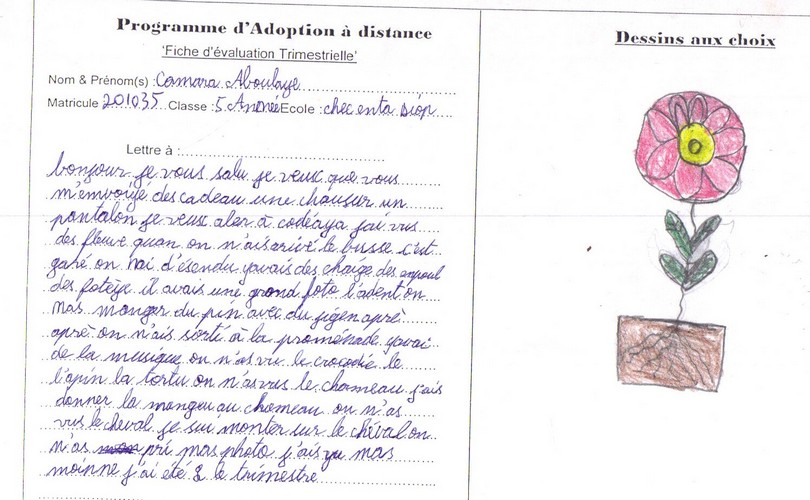 Programme d'Adoption à distance
'Fiche d'évaluation Trimestrielle'
Nom & Prénom(s) : Camara Aboulaye
Matricule 201035 Classe : 5 Année Ecole : chec enta Diop
Lettre à :
bonjour je vous salu je veux que vous
m'envoyé des cadeau une chausur un
pantalon je veux aler à codéaya j'ai vus
des fleuve quan on n'ais arivé le busse c'est
garé on n'ai d'ésendu yavais des chaige des
des foteye il avais une grond foto l'adent on
mas manger du pin avec du jigen aprè
aprè on n'ais sorti à la proménade yavai
de la meusique on n'as vu le crocodie le
l'apin la tortu on n'as vus le chameau j'ais
donner la mangeu au chameau on n'as
vus le cheval je sui monter sur le chéval on
n'as pri mas photo j'ais yu mas
moinne j'ai été 8 le trimestre
Dessins aux choix